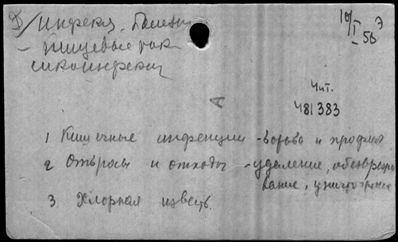 Д/Инфекц. болезни
10/I - 56 Э
- пищевые ток
сикоинфекц
Чит.
481383
1 Кишечные инфекции - борьба и профил
2 Отбросы и отходы - удаление, обезврежи
вание, уничтожение
3 Хлорная известь.